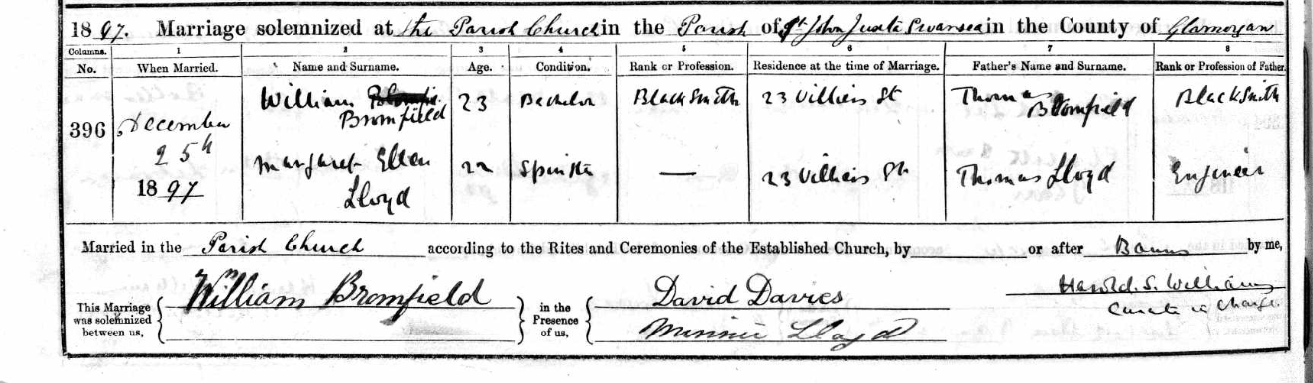 1897. Marriage solemnized at the Parish Church in the Parish of St John Juxta Swansea in the County of Glamorgan
Columns. 1 2 3 4 5 6 7 8
No. When Married. Name and Surname. Age. Condition. Rank or Profession. Residence at the time of Marriage. Father's Name and Surname. Rank or Profession of Father.
396 December 25th 1897
William Bromfield 23 Bachelor Blacksmith 23 Villiers St Thomas Bromfield Blacksmith
Margaret Ellen Lloyd 22 Spinster — 23 Villiers St Thomas Lloyd Engineer
Married in the Parish Church according to the Rites and Ceremonies of the Established Church, by or after Banns by me,
This Marriage was solemnized between us, William Bromfield in the Presence of us, David Davies Minnie Lloyd
Harold S. Williams
Curate in Charge